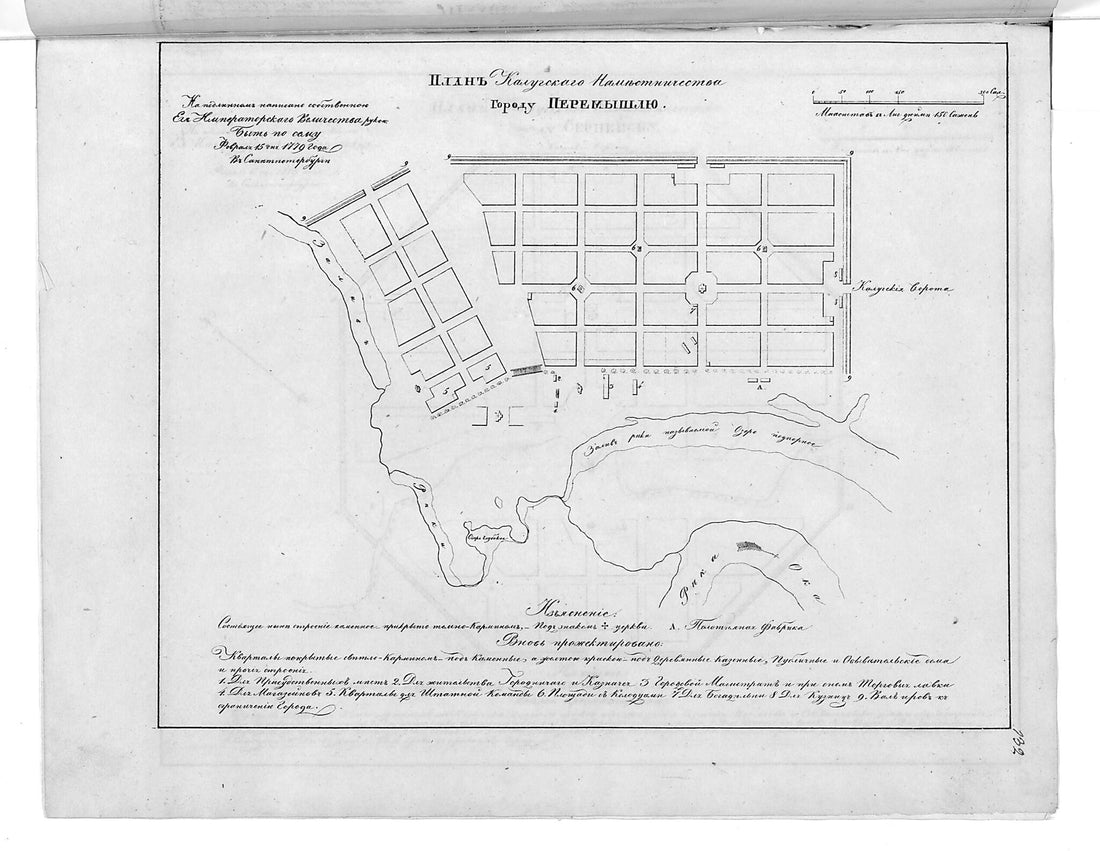 ПЛАНЪ Калугскаго Намѣстничества
Городу ПЕРЕМЫШЛЮ.
На подлинномъ написано собственною
Ея Императорскаго Величества рукою
Быть по сему
Февраля 15 дня 1779 Года
Въ Санктпетербургѣ
0 50 100 150 300 Саж.
Масштабъ въ Анг. дюймѣ 150 Саженъ
9 9 9 9 9
6 6 6
7
5 5
Калугскія Ворота
5 5
А
Заливъ рѣки называемой Озеро подгорное
Рѣка Ока
Изъясненіе:
Состоящее нынѣ строеніе каменное прикрыто темно-Карминомъ, - Подъ знакомъ ✢ церкви. А. Полотняная Фабрика
Вновь прожектировано:
Кварталы покрытые свѣтло-Карминомъ подъ Каменные, а желтою краскою подъ Деревянные Казенные, Публичные и Обывательскіе домы
и прочее строеніе
1. Для Присудственныхъ мѣстъ 2. Для жительства Городничаго и Казначея 3 Городовой Магистратъ и при ономъ Торговыя лавки
4. Для Магазейновъ 5. Кварталы для Штатной Команды 6. Площади съ Колодцами 7. Для Богадѣльни 8 Для Кузницъ 9. Валъ и ровъ къ
ограниченію Города.
132